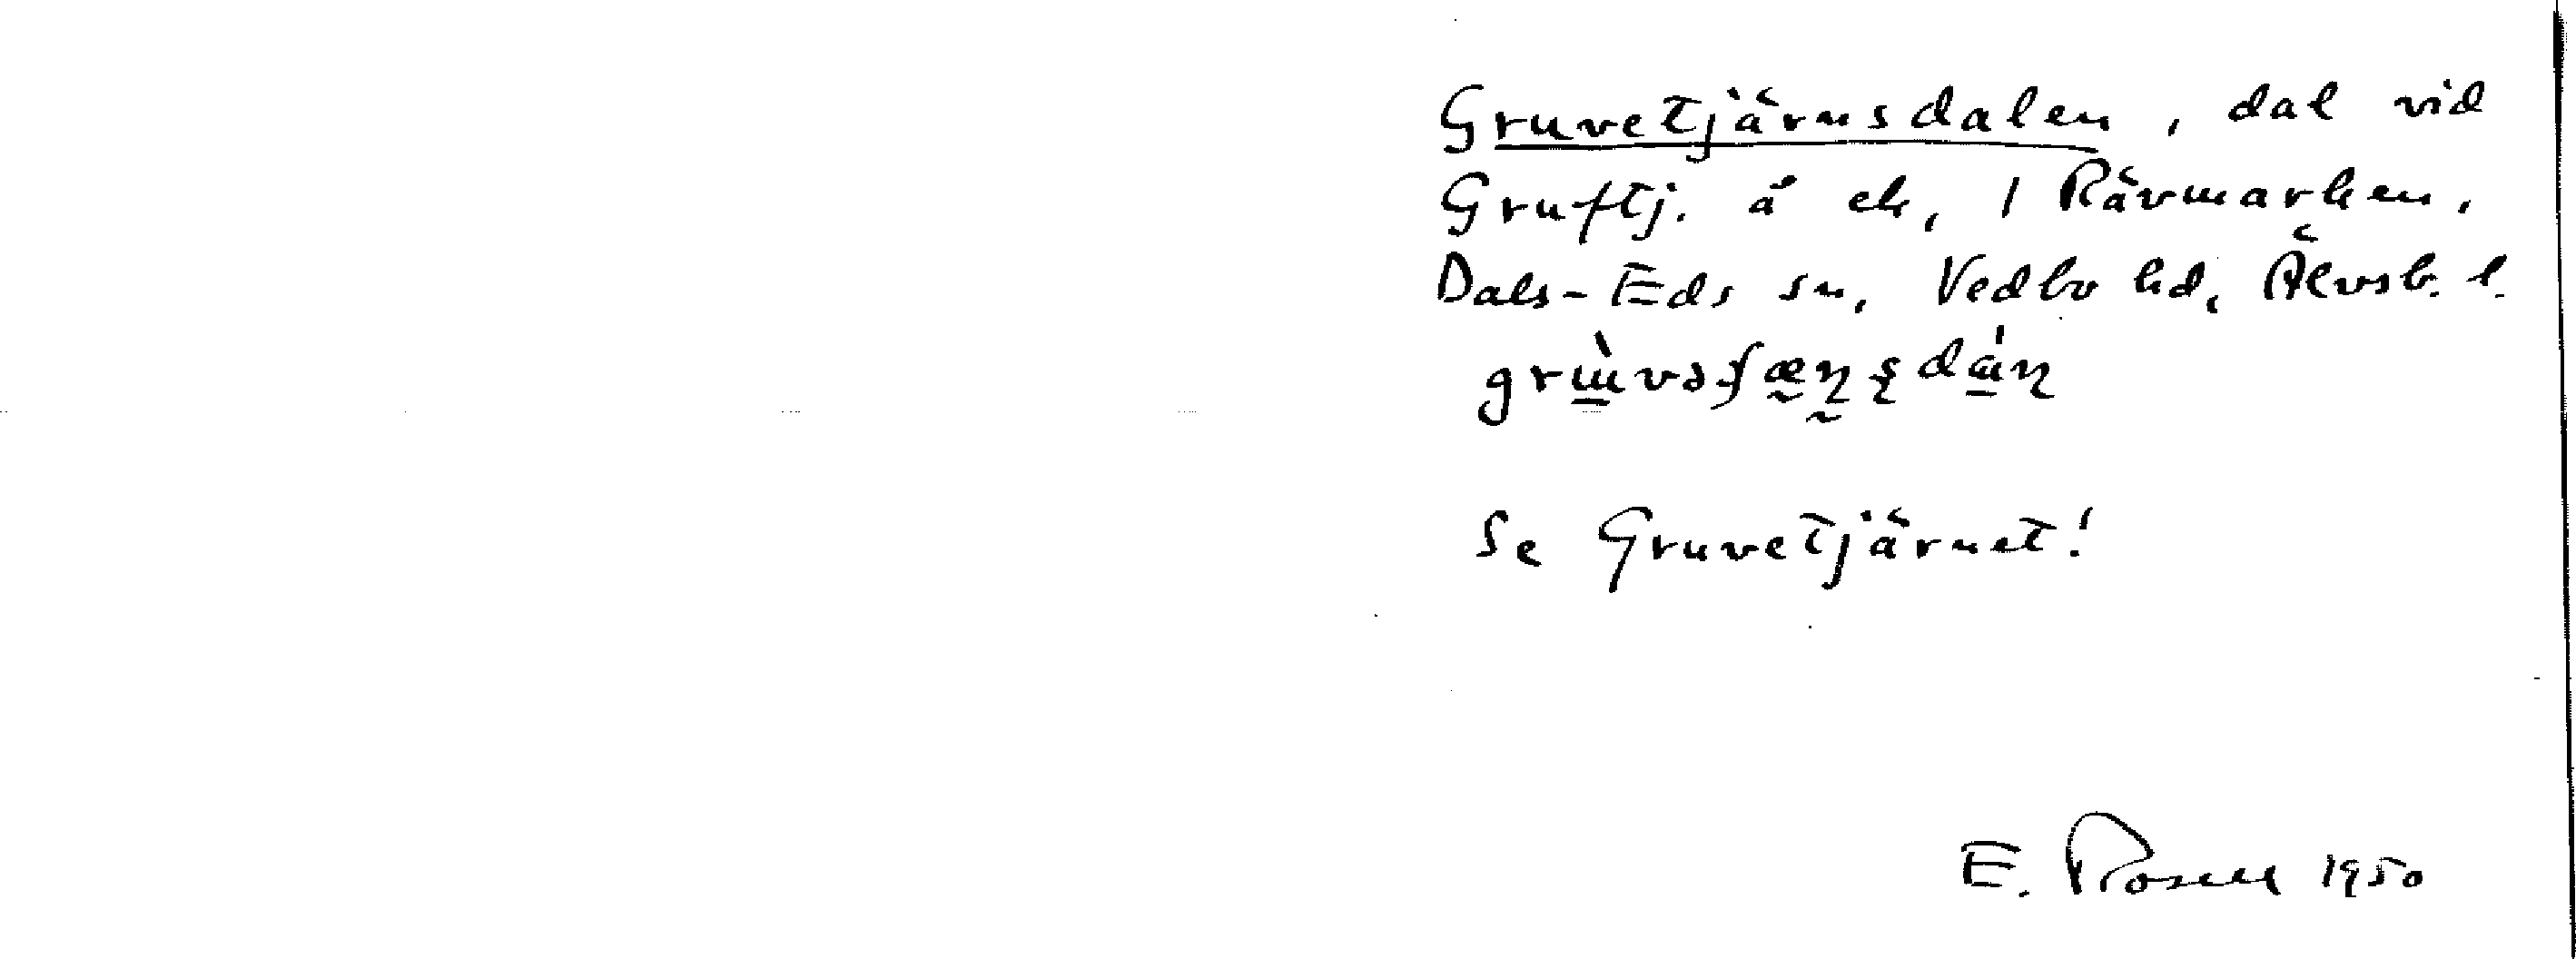 Gruvetjärnsdalen, dal vid
Gruftj. å ek, 1 Rävmarken,
Dals-Eds sn, Vedbo hd, Älvsb. l.
Se Gruvetjärnet!
E. Rosell 1950